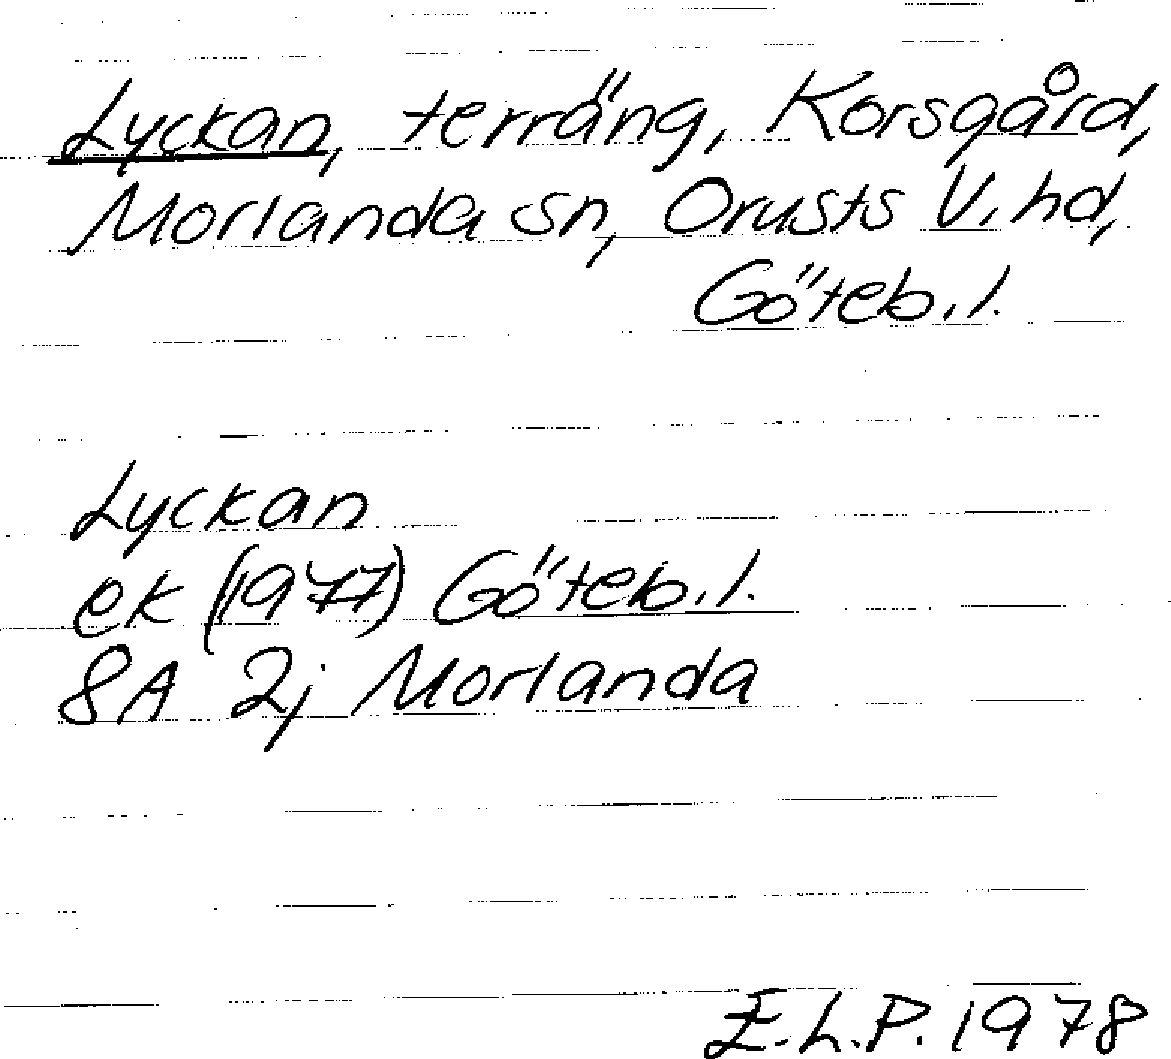 Lyckan, terräng, Korsgård,
Morlanda sn, Orusts V. hd,
Göteb. l.
Lyckan
ek (1977) Göteb. l.
8A 2j Morlanda
E.L.P. 1978